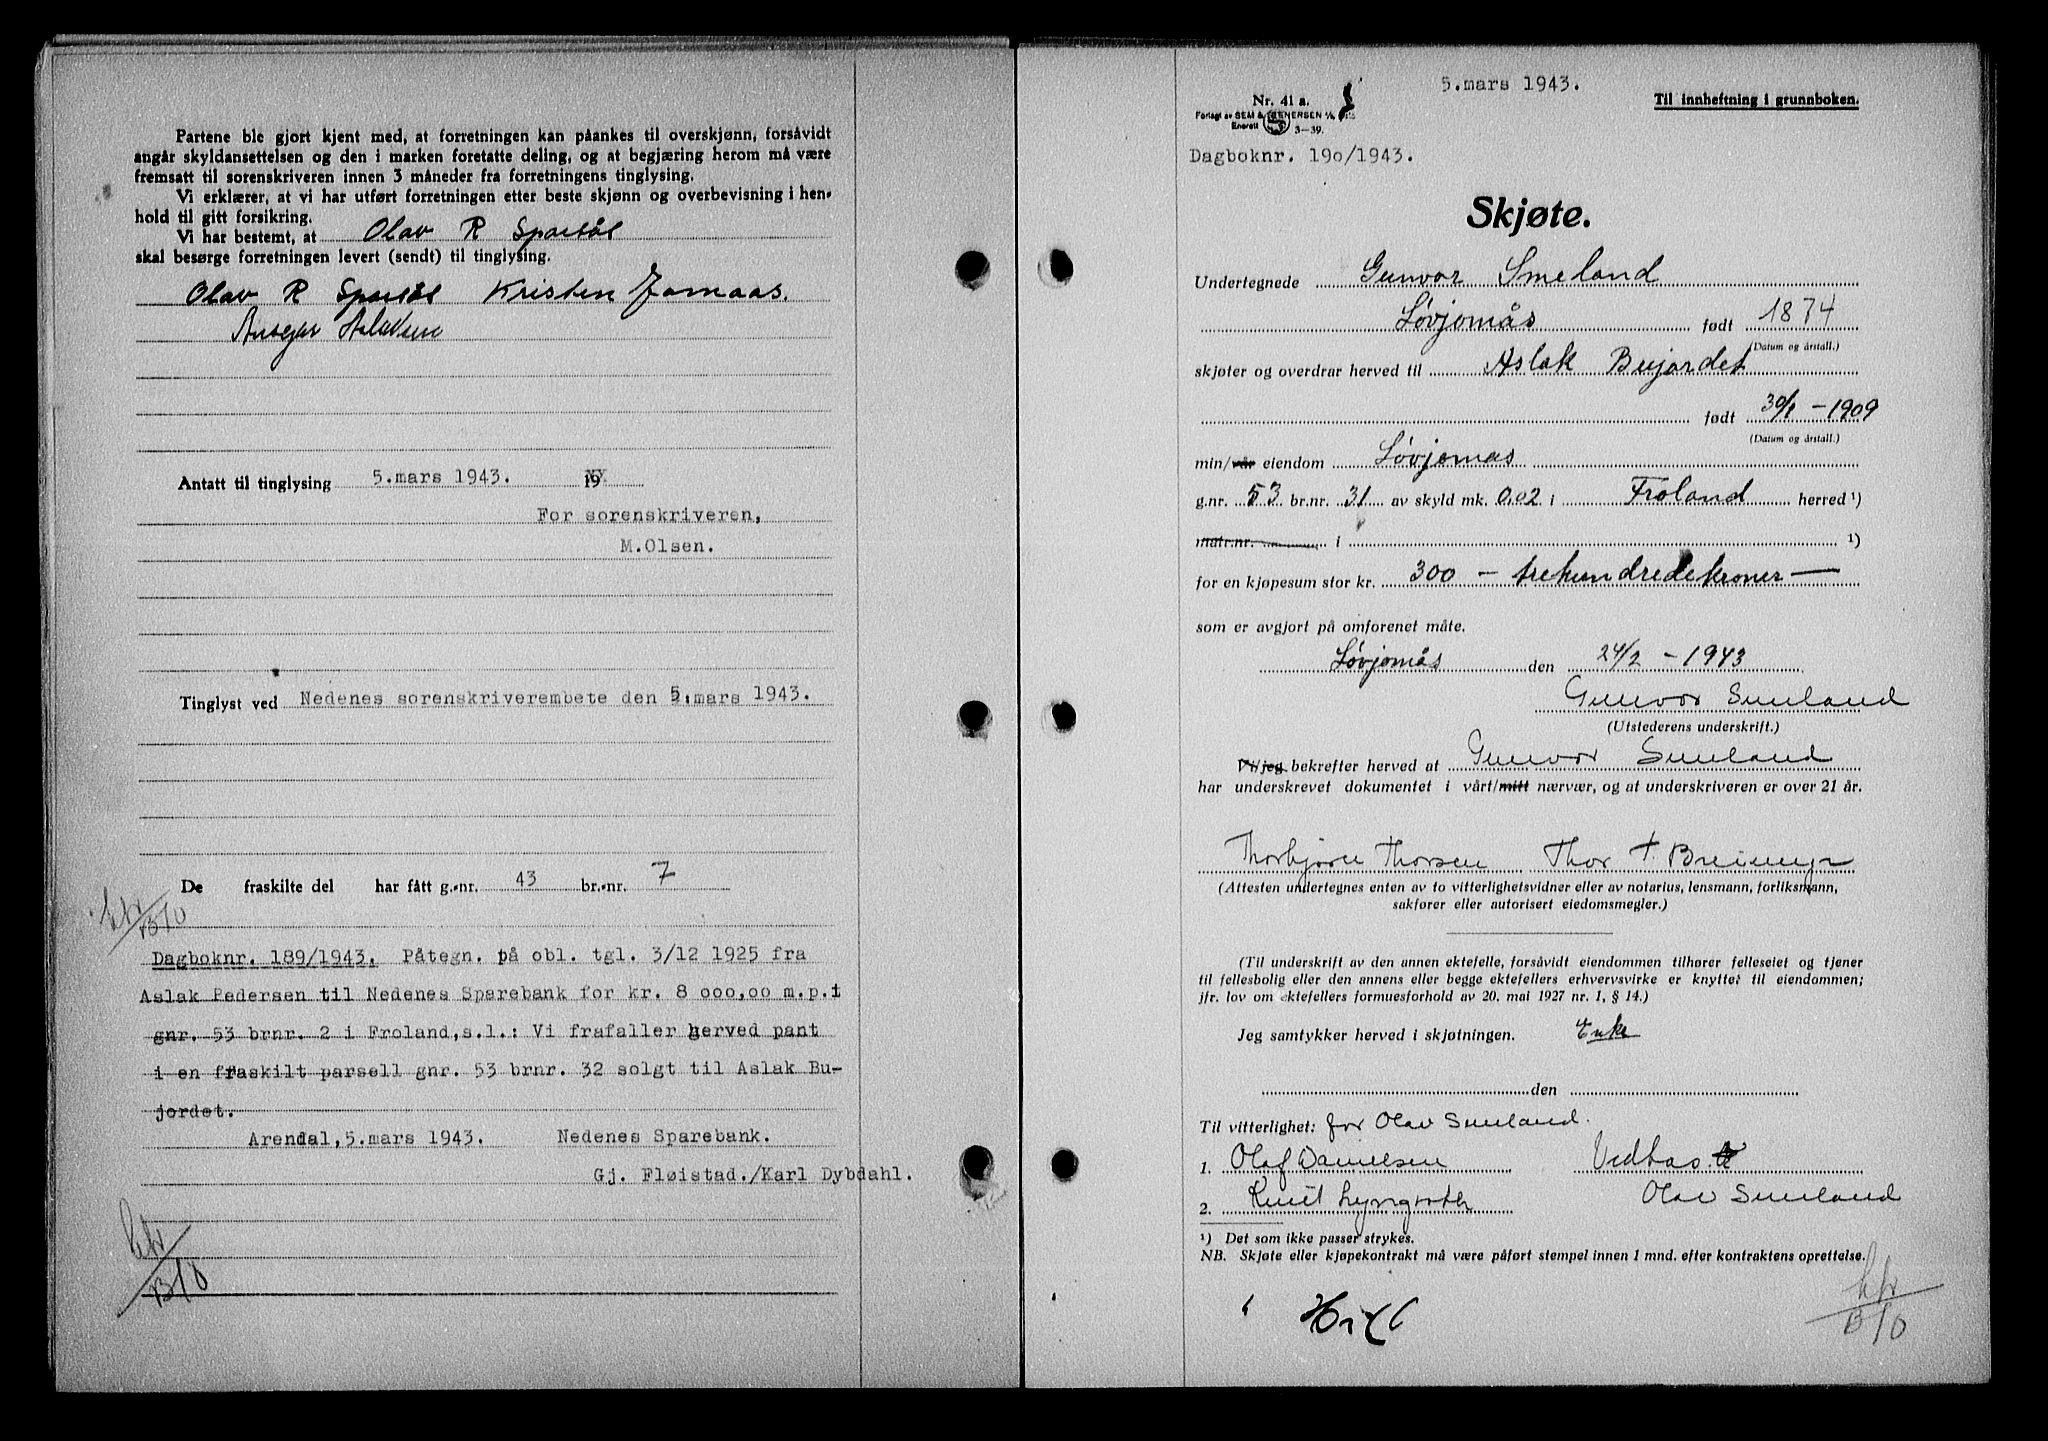 Partene ble gjort kjent med, at forretningen kan påankes til overskjønn, forsåvidt
angår skyldansettelsen og den i marken foretatte deling, og at begjæring herom må være
fremsatt til sorenskriveren innen 3 måneder fra forretningens tinglysing.
Vi erklærer, at vi har utført forretningen etter beste skjønn og overbevisning i hen-
hold til gitt forsikring.
Vi har bestemt, at Olav R Sportøl
skal besørge forretningen levert (sendt) til tinglysing.
Olav R Sportøl Kristen Jomaas.
Aslaksen
Antatt til tinglysing 5.mars 1943. 19
For sorenskriveren,
M.Olsen.
Tinglyst ved Nedenes sorenskriverembete den 5.mars 1943.
De fraskilte del har fått g.-nr. 43 br.-nr. 7
Dagboknr. 189/1943. Påtegn. på obl. tgl. 3/12 1925 fra
Aslak Pedersen til Nedenes Sparebank for kr. 8 000,00 m.p.i
gnr. 53 brnr. 2 i Froland,s.l.: Vi frafaller herved pant
i en fraskilt parsell gnr. 53 brnr. 32 solgt til Aslak Bu-
jordet.
Arendal,5.mars 1943. Nedenes Sparebank.
Gj. Fløistad./Karl Dybdahl.
5.mars 1943.
Nr. 41 a.
Til innheftning i grunnboken.
Forlagt av SEM & STENERSEN A/S
Enerett 3-39.
Dagboknr. 190/1943.
Skjøte.
Undertegnede Gunvor Smeland
Løvjomås født 1874
(Datum og årstall.)
skjøter og overdrar herved til Aslak Bujordet
født 30/1 - 1909
(Datum og årstall.)
min/vår eiendom Løvjomås
g.nr. 53 br.nr. 31 av skyld mk. 0.02 i Froland herred ¹)
matr.nr. i ¹)
for en kjøpesum stor kr. 300 - trehundredekroner -
som er avgjort på omforenet måte.
Løvjomås den 24/2 - 1943
Gunvor Smeland
(Utstederens underskrift.)
Vi/jeg bekrefter herved at Gunvor Smeland
har underskrevet dokumentet i vårt/mitt nærvær, og at underskriveren er over 21 år.
Thorbjørn Thorsen Thor T. Breimyr
(Attesten undertegnes enten av to vitterlighetsvidner eller av notarius, lensmann, forliksmann,
sakfører eller autorisert eiedomsmegler.)
(Til underskrift av den annen ektefelle, forsåvidt eiendommen tilhører felleseiet og tjener
til fellesbolig eller den annens eller begge ektefellers erhvervsvirke er knyttet til eiendommen;
jfr. lov om ektefellers formuesforhold av 20. mai 1927 nr. 1, § 14.)
Jeg samtykker herved i skjøtningen. Enke
den
Til vitterlighet: for Olav Smeland.
1. Olaf Danielsen Vedtas
2. Knut Lyngroth Olav Smeland
¹) Det som ikke passer strykes.
NB. Skjøte eller kjøpekontrakt må være påført stempel innen 1 mnd. efter kontraktens oprettelse.